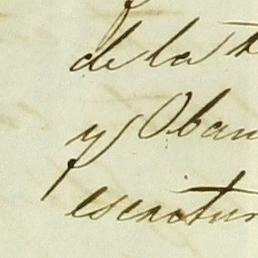 de la
y Oban
escritur